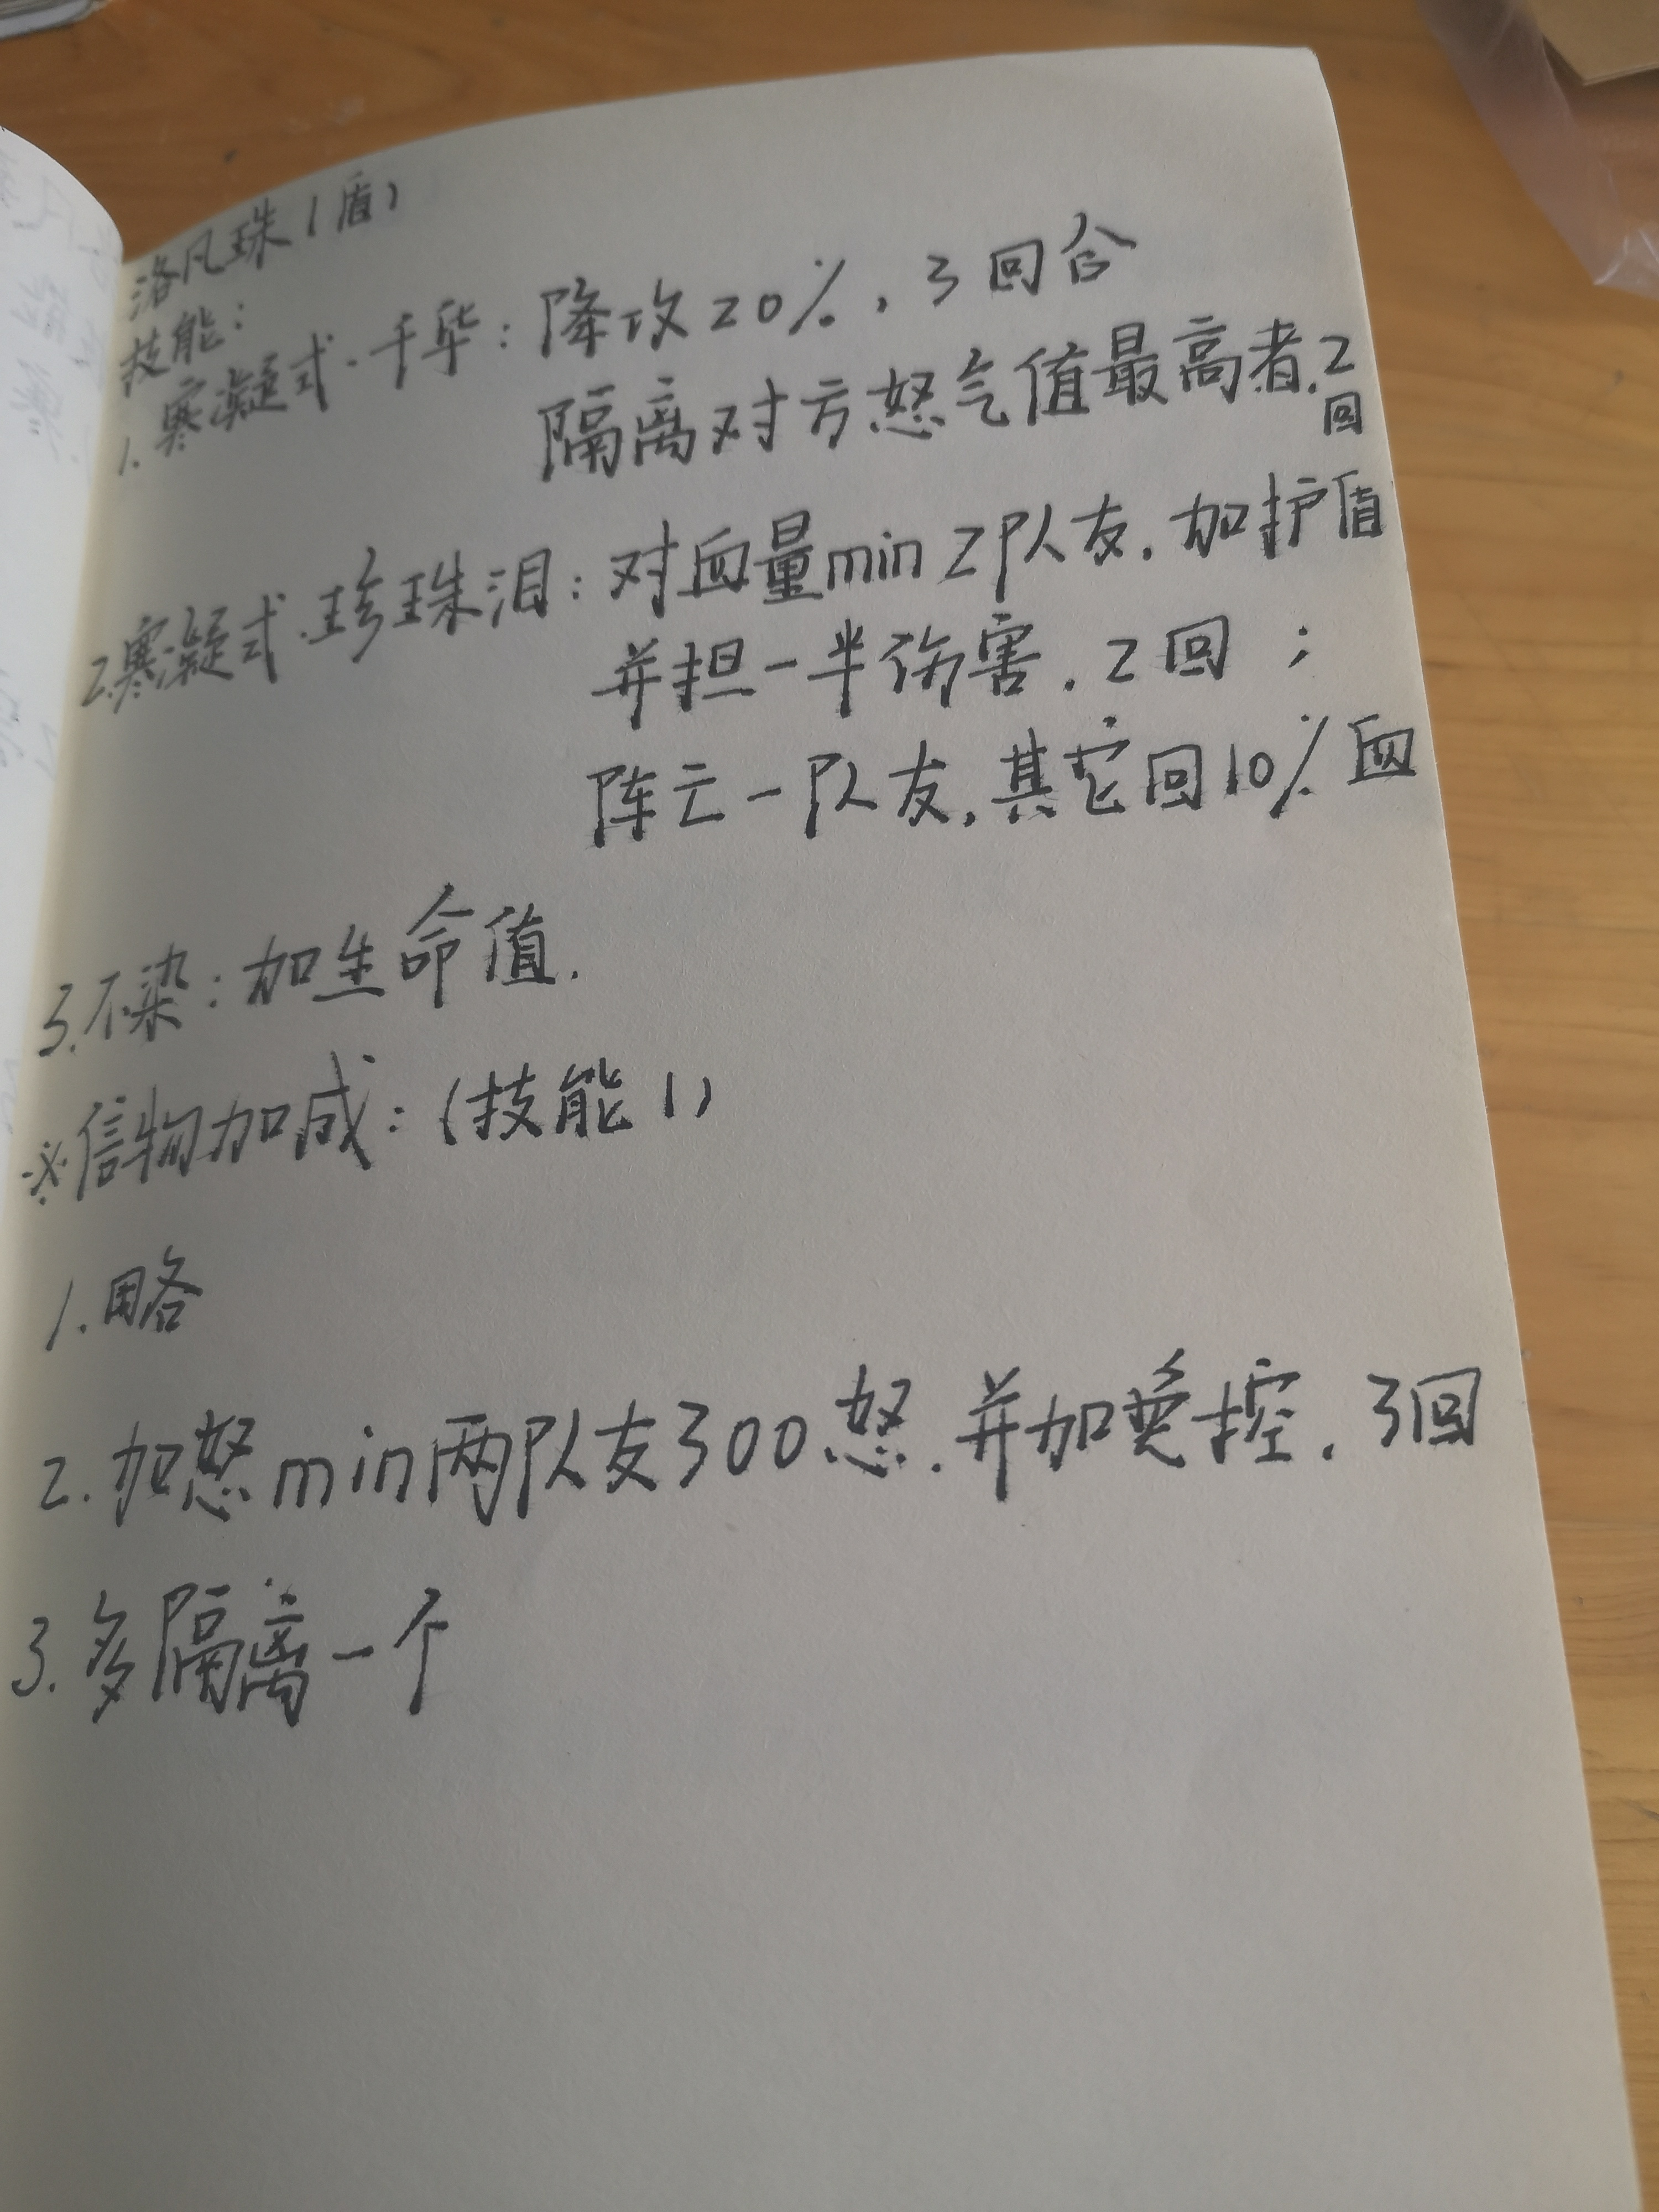 洛凡珠(盾)
技能:
1.寒凝式·千华:降攻20%,3回合
隔离对方怒气值最高者,2回
2.寒凝式·珍珠泪:对血量min2队友,加护盾
并担一半伤害,2回;
阵亡一队友,其它回10%血
3.不染:加生命值.
※信物加成:(技能1)
1.略
2.加怒min两队友300怒,并加受控,3回
3.多隔离一个